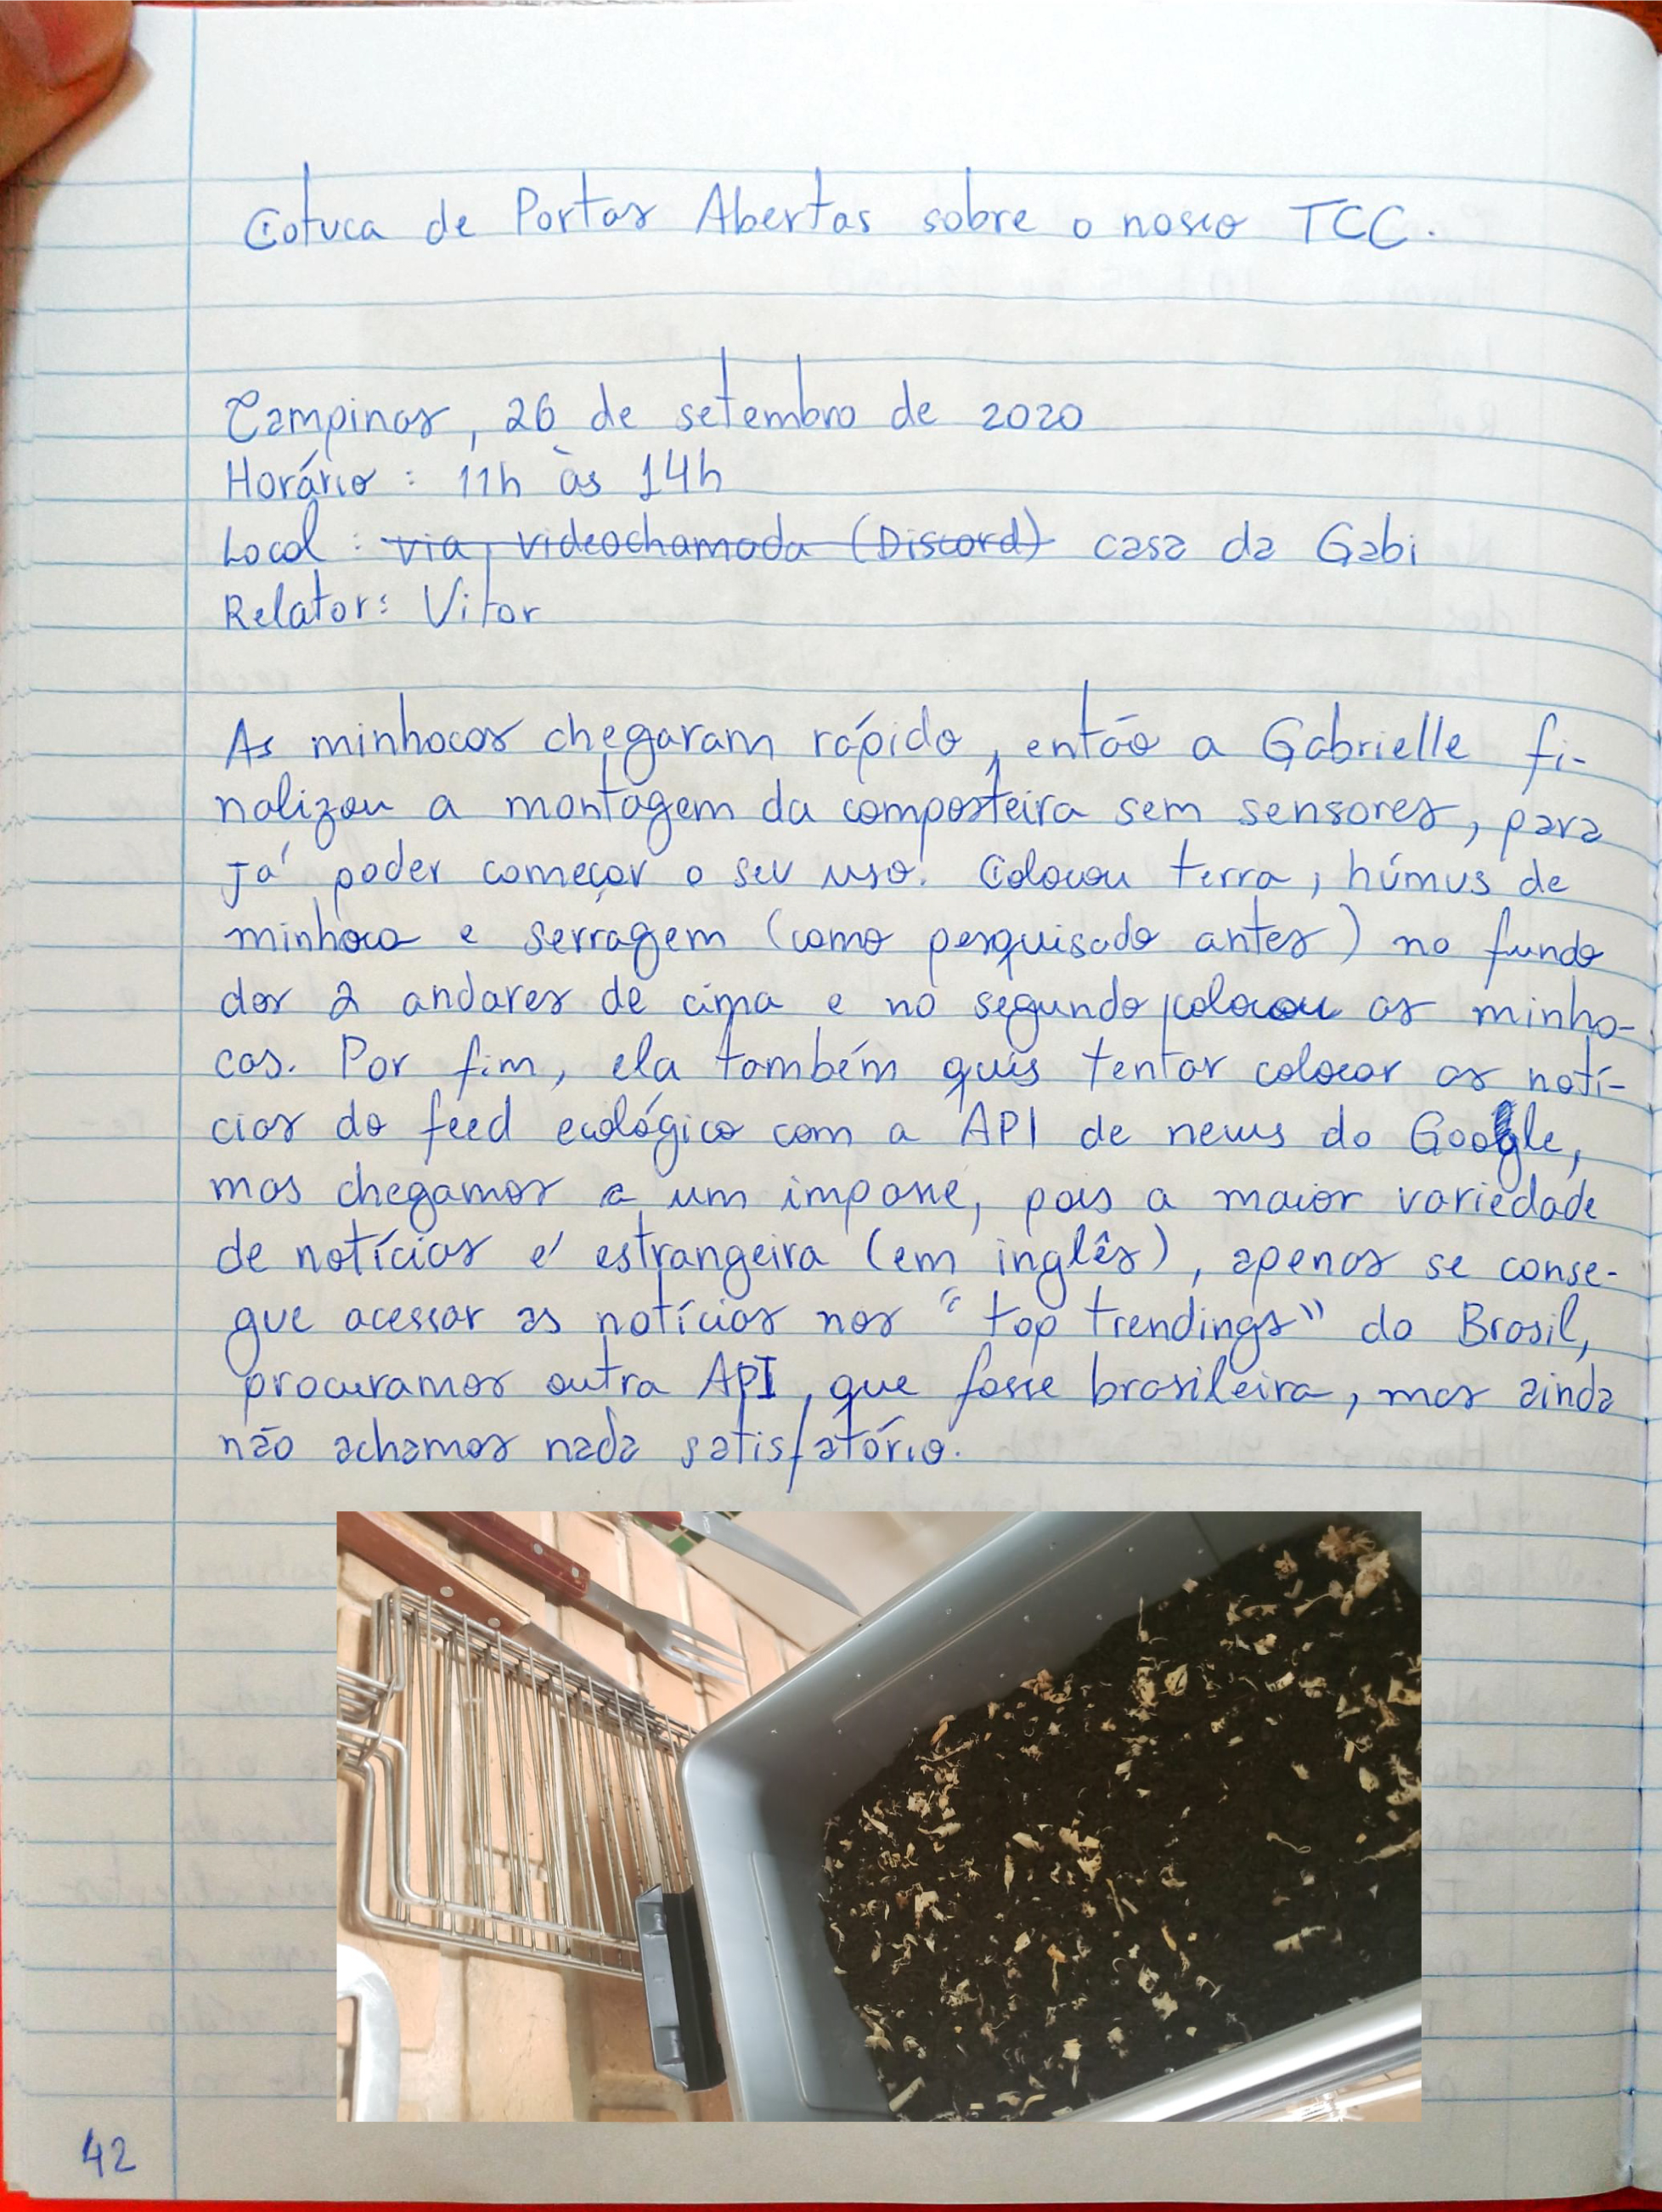 Cotuca de Portas Abertas sobre o nosso TCC.
Campinas, 26 de setembro de 2020
Horário: 11h às 14h
Local: via videochamada (Discord) casa da Gabi
Relator: Vitor
As minhocas chegaram rápido, então a Gabrielle fi-
nalizou a montagem da composteira sem sensores, para
já poder começar o seu uso. Colocou terra, húmus de
minhoca e serragem (como pesquisado antes) no fundo
dos 2 andares de cima e no segundo colocou as minho-
cas. Por fim, ela também quis tentar colocar as notí-
cias do feed ecológico com a API de news do Google,
mas chegamos a um impasse, pois a maior variedade
de notícias é estrangeira (em inglês), apenas se conse-
gue acessar as notícias nos "top trendings" do Brasil,
procuramos outra API, que fosse brasileira, mas ainda
não achamos nada satisfatório.
42